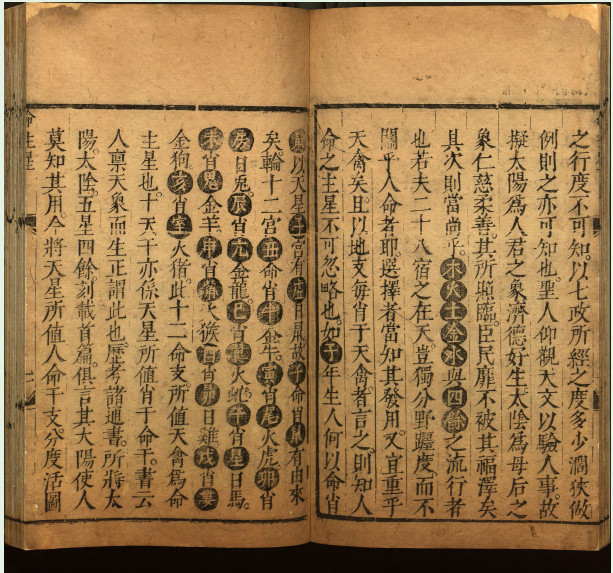 之行度不可知。以七政所經之度多少濶狹倣
例則之亦可知也聖人仰觀天文以驗人事。故
擬太陽為人君之象濟德好生太陰為母后之
象仁慈柔善。其所照臨。臣民靡不被其福澤矣
其次則當啇乎。木火土金水與四餘之流行者
也若夫二十八宿之在天豈獨分野躔度。而不
關乎人命者耶。選擇者當知其發用。又宜重乎
天禽矣。且以地支每肖于天禽。者言之。則知人
命之主星不可忽略也。如子年生人何以命肖
以天星子宮有虛日鼠故子命肖鼠有由來
矣輪十二宮丑命肖牛金牛。寅肖尾火虎卯肖
房日兎。辰肖亢金龍。巳肖翼火蛇午肖星日馬。
未肖鬼金羊。申肖火猴酉肖昴日雞戌肖婁
金狗亥肖室火猪。此十二命支。所值天禽為命
主星也。十天干亦係天星所值肖于命干。書云
人禀天象而生正謂此也。歷考諸通書。所將太
陽太陰。五星四餘。刻載首篇。俱言其大陽使人
莫知其用。今將天星所值人命干支。分度活圖
命主星